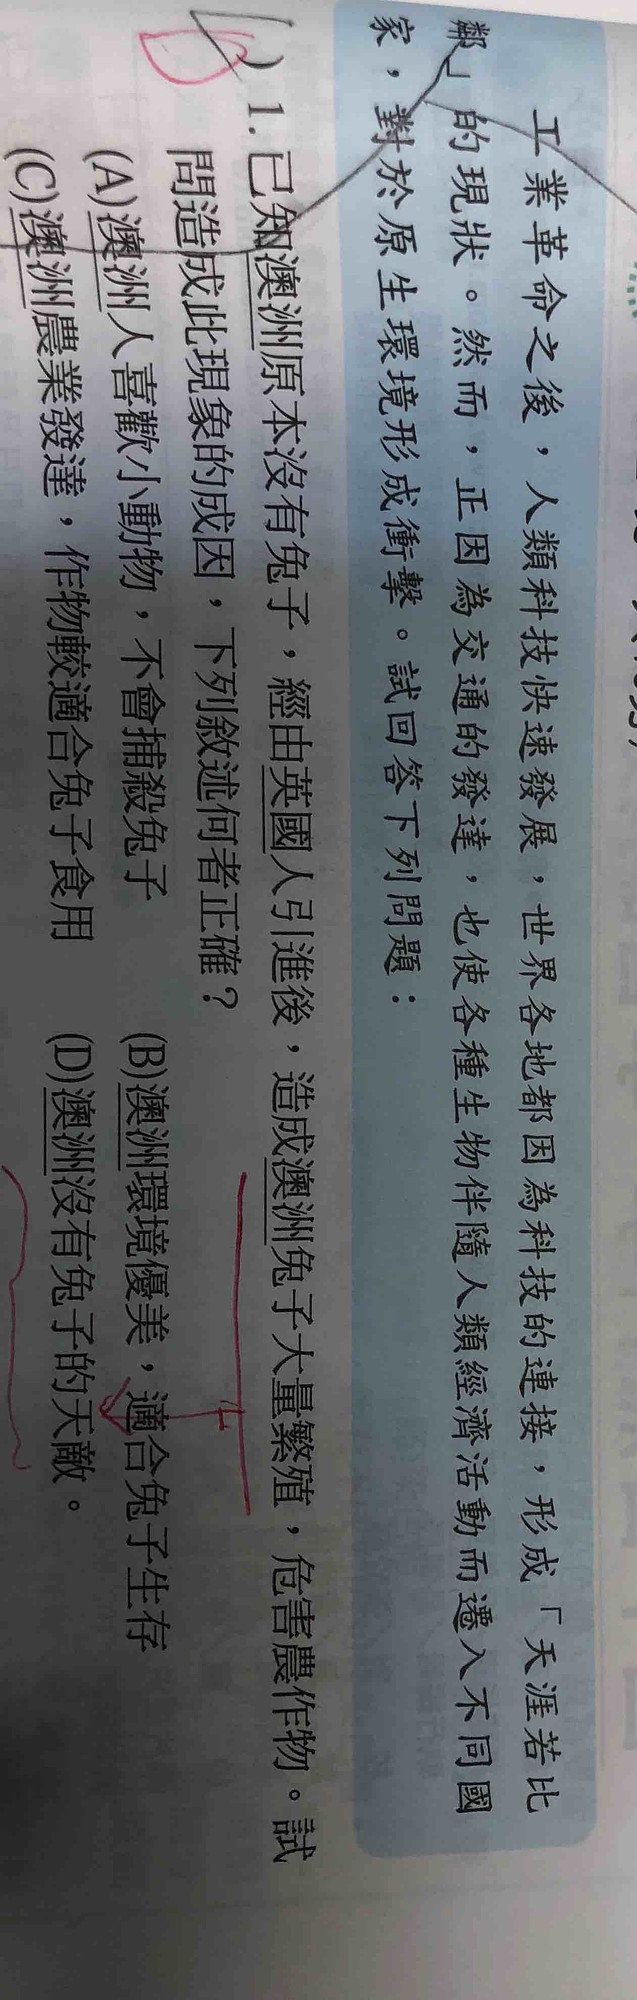 工業革命之後，人類科技快速發展，世界各地都因為科技的連接，形成「天涯若比
鄰」的現狀。然而，正因為交通的發達，也使各種生物伴隨人類經濟活動而遷入不同國
家，對於原生環境形成衝擊。試回答下列問題：
( ) 1. 已知澳洲原本沒有兔子，經由英國人引進後，造成澳洲兔子大量繁殖，危害農作物。試
問造成此現象的成因，下列敘述何者正確？
(A)澳洲人喜歡小動物，不會捕殺兔子 (B)澳洲環境優美，適合兔子生存
(C)澳洲農業發達，作物較適合兔子食用 (D)澳洲沒有兔子的天敵。